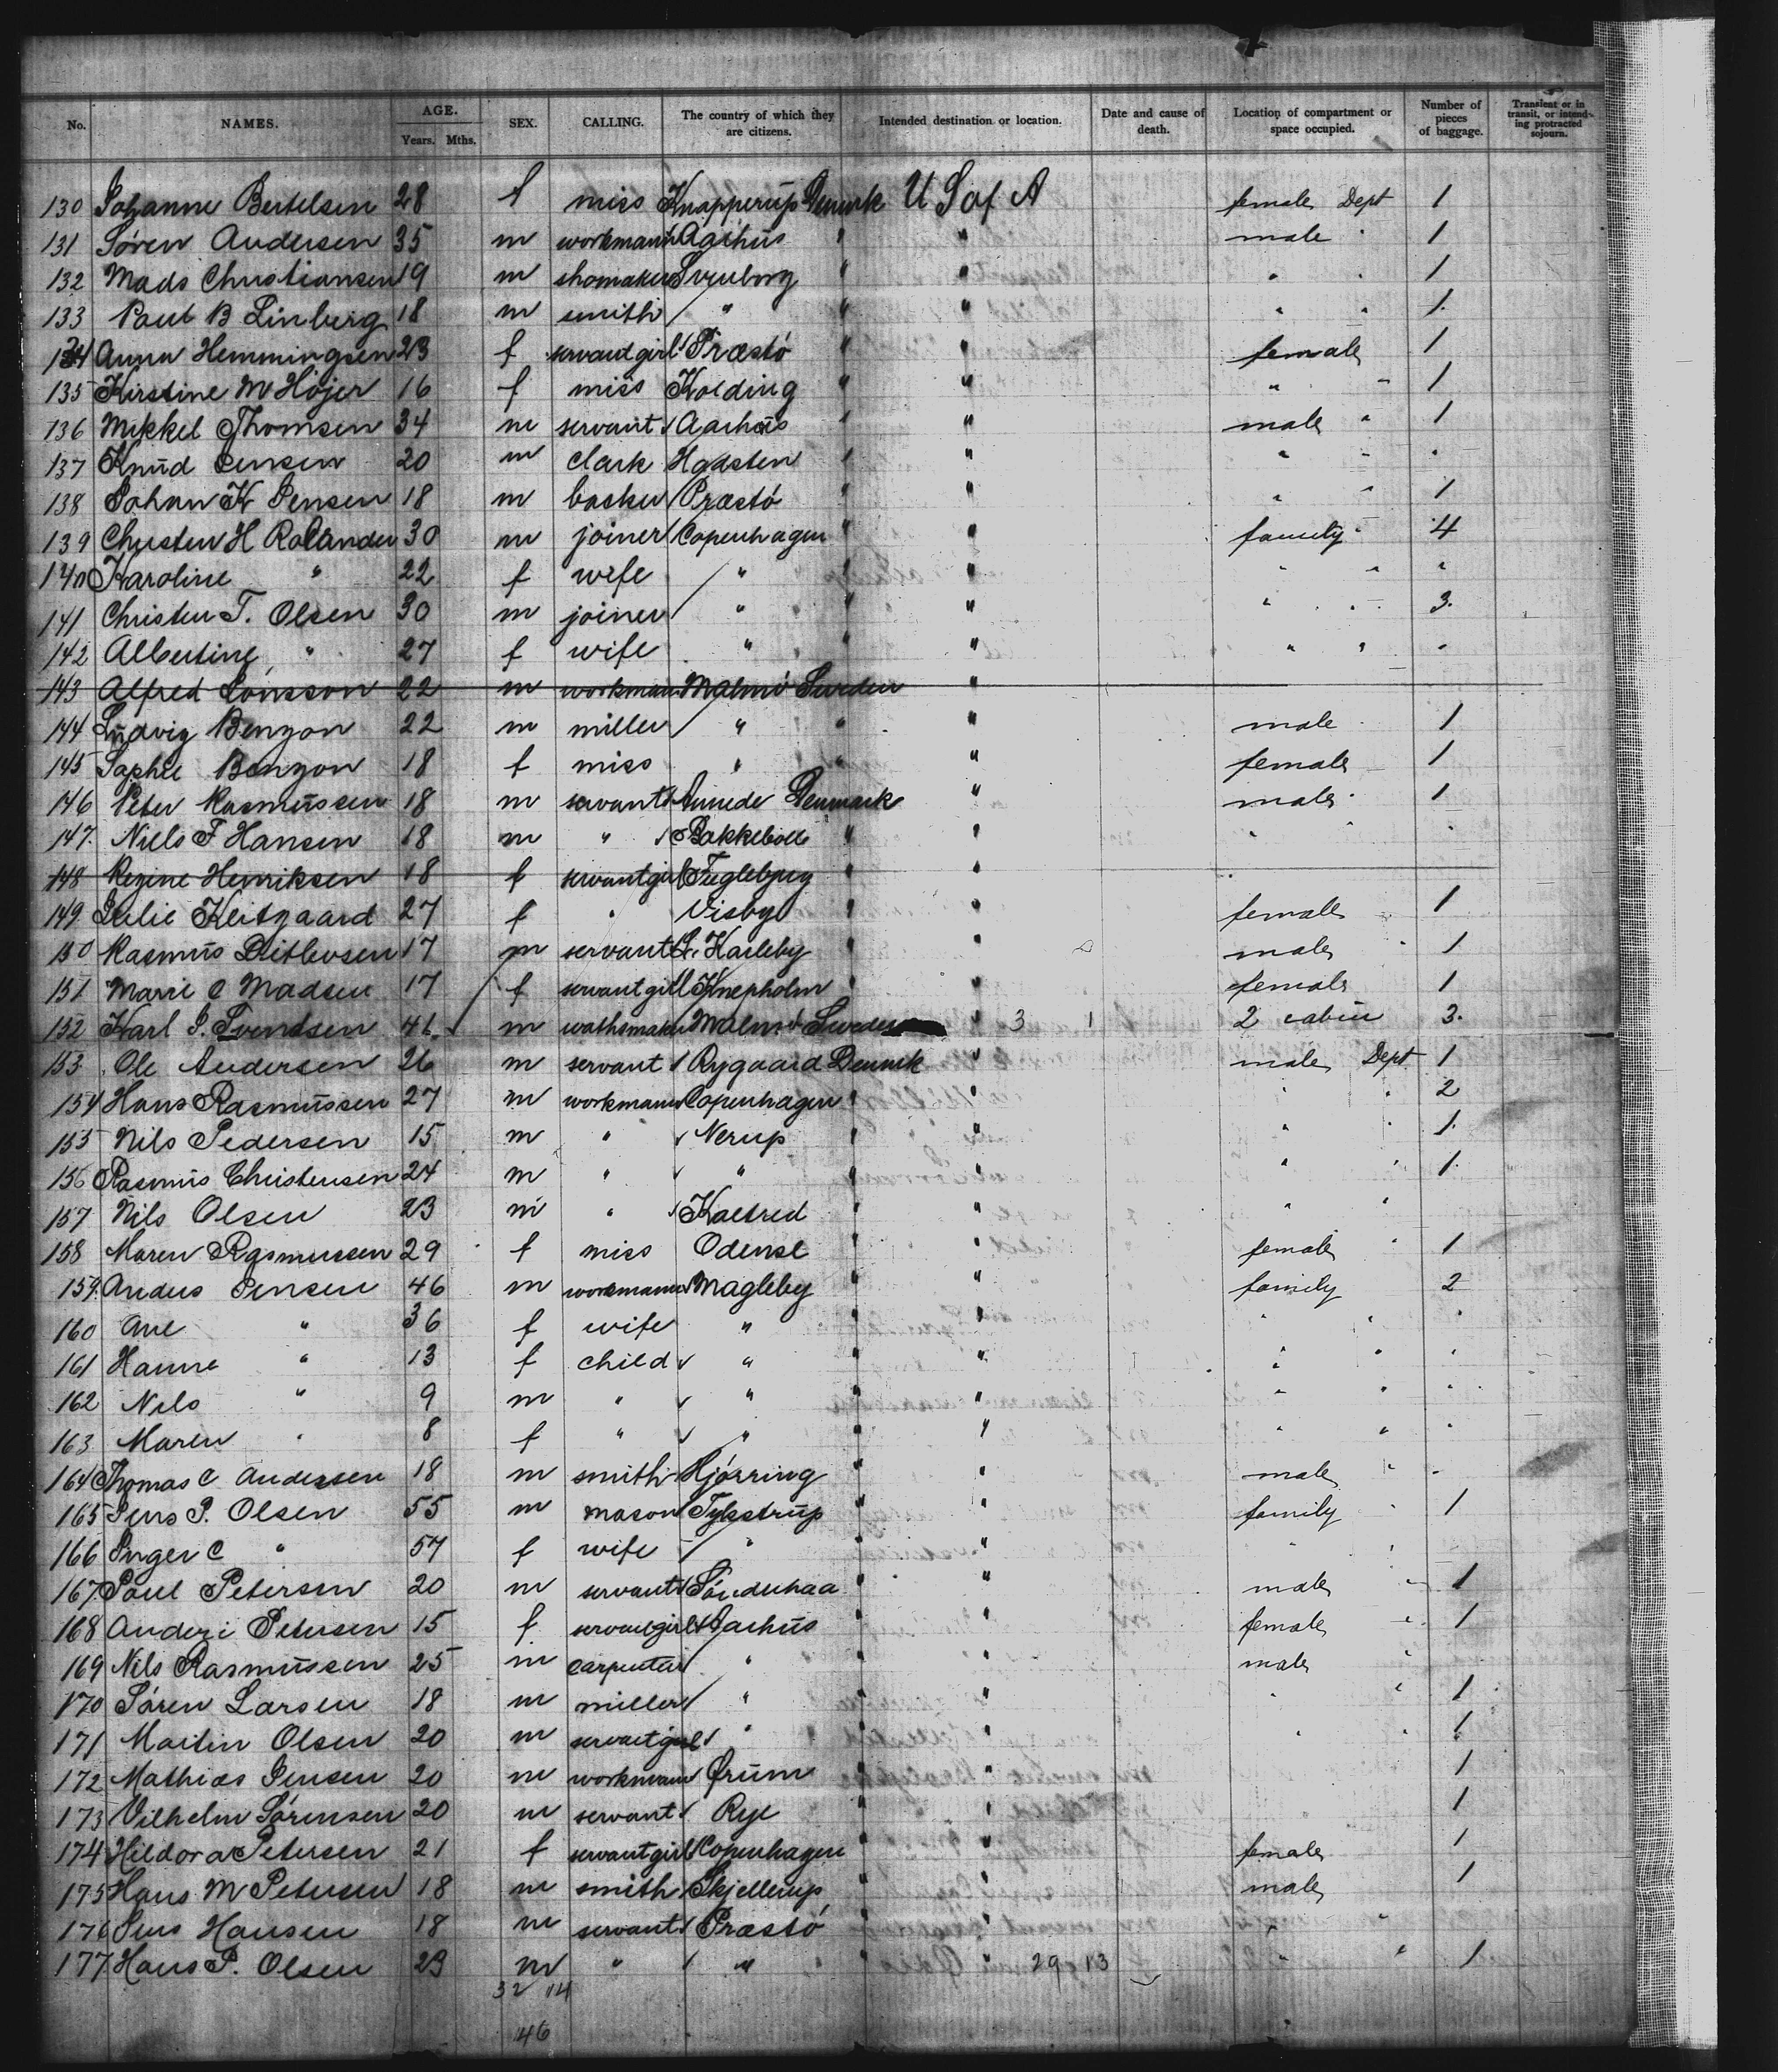 No. NAMES. AGE. Years. Mths. SEX. CALLING. The country of which they are citizens. Intended destination or location. Date and cause of death. Location of compartment or space occupied. Number of pieces of baggage. Transient or in transit, or intending protracted sojourn.
130 Johanne Bertelsen 28 f miss Knapperup Denmrk U S of A female Dept 1
131 Sören Andersen 35 m workmann Aarhus " " male " 1
132 Mads Christiansen 19 m shomaker Svenborg " " " " 1
133 Paul B Linberg 18 m smith " " " " " 1
134 Anna Hemmingsen 23 f servantgirl Præstö " " female 1
135 Kirstine M Höjer 16 f miss Kolding " " " " 1
136 Mikkel Thomsen 34 m servant Aarhus " " male " 1
137 Knud Jensen 20 m clark Hadsten " " " " "
138 Johan K Jensen 18 m Præstö " " " " 1
139 Christen H Rolander 30 m joiner Copenhagen " " family " 4
140 Karoline " 22 f wife " " " " " "
141 Christen T. Olsen 30 m joiner " " " " " 3.
142 Albertine " 27 f wife " " " " " "
143 Alfred Jönsson 22 m workmann Malmö Sweden "
144 Ludvig Benzon 22 m miller " " " male " 1
145 Sophie Benzon 18 f miss " " " female 1
146 Peter Rasmussen 18 m servant Denmark " male " 1
147. Niels F Hansen 18 m " Bakkeböll " " " " "
148 Regine Henriksen 18 f servantgirl Fuglebjerg " "
149 Julie Kleitgaard 27 f " Visby " " female " 1
150 Rasmus Ditlevsen 17 m servant Karleby " " male " 1
151 Marie C Madsen 17 f servantgirl Knepholm " " female 1
152 Karl J. Svendsen 46 m wathsmaker Malmö Sweden " 3 1 2 cabin 3.
153. Ole Andersen 26 m servant Rygaard Denmrk " male Dept 1
154 Hans Rasmussen 27 m workmann Copenhagen " " " " 2
155 Nils Pedersen 15 m " Nerup " " " " 1.
156 Rasmus Christensen 24 m " " " " " " 1.
157 Nils Olsen 23 m " Kaldred " " "
158 Maren Rasmussen 29 f miss Odense " female " 1
159. Anders Jensen 46 m workmann Magleby " " family 2
160 Ane " 36 f wife " " " " " "
161 Hanne " 13 f child " " " " " "
162 Nils " 9 m " " " " " " "
163 Maren " 8 f " " " " " " "
164 Thomas C Andersen 18 m smith Hjörring " " male " "
165 Jens P. Olsen 55 m mason Tylstrup " " family " 1
166 Inger C " 57 f wife " " " " "
167. Poul Petersen 20 m servant " " male " 1
168 Petersen 15 f servantgirl Aarhus " " female " 1
169 Nils Rasmussen 25 m carpenter " " " male "
170 Sören Larsen 18 m miller " " " " " 1
171 Martin Olsen 20 m servantgirl " " " " " 1
172 Mathias Jensen 20 m workmann Ørum " " 1
173 Vilhelm Sörensen 20 m servant Rye " " 1
174 Hildora Petersen 21 f servantgirl Copenhagen " " female 1
175 Hans M Petersen 18 m smith Skjellerup " " male 1
176 Jens Hansen 18 m servant Præstö " " " "
177 Hans P. Olsen 23 m " " " " 29 13 " " 1
32 14
46